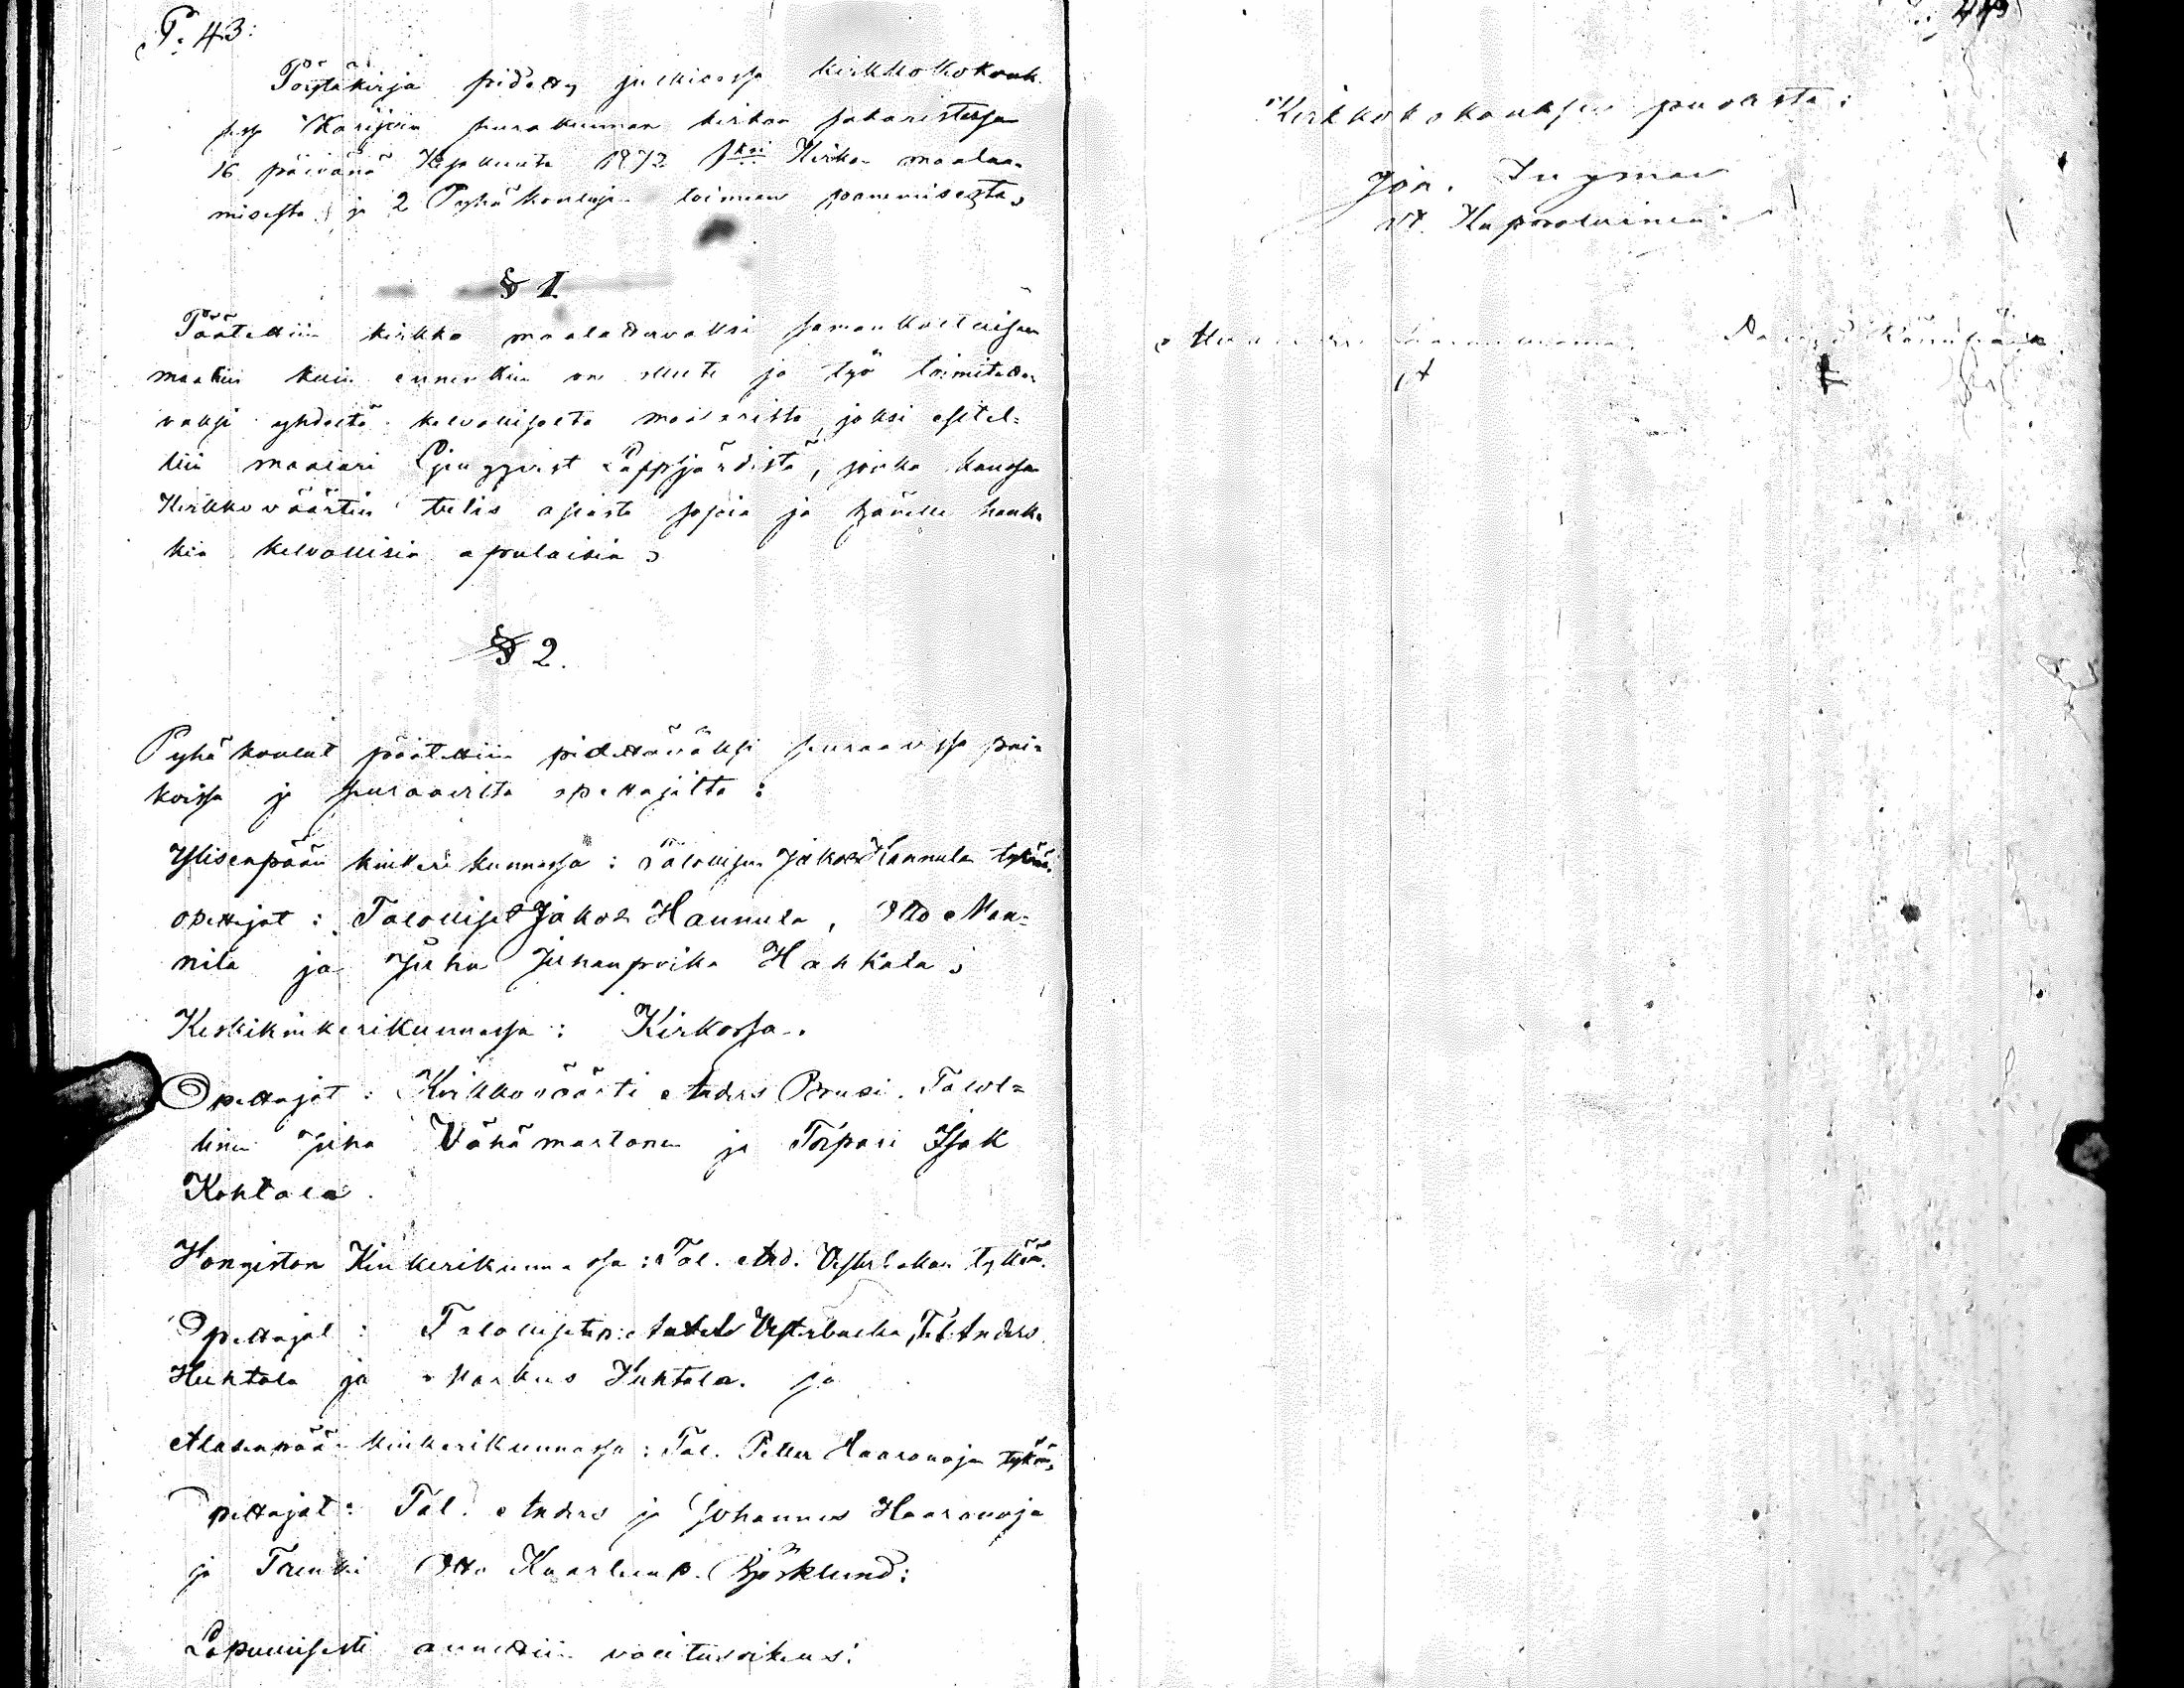 P. 43:
Pöytäkirja pidetty julkisessa kirkkokokouk-
sessa Karijoen seurakunnan kirkon sakaristossa
16 päivänä Kesäkuuta 1872 1ksi Kirkon maalaa-
misesta ja 2 Pyhäkoulujen toimeen panemisesta,
§ 1
Päätettiin kirkko maalattavaksi samankaltaisen
maalin kuin ennenkin on ollut ja työ toimitetta-
vaksi yhdeltä kelvolliselta maalarilta, joksi esitel-
tiin maalari Ljungqvist Lappfjärdistä, jonka kanssa
Kirkkoväärtin tulis asiasta sopia ja hänelle hank-
kia kelvollisia apulaisia;
§ 2.
Pyhäkoulut päätettiin pidettäväksi seuraavissa pai-
koissa ja seuraavilta opettajilta:
Ylisenpään kinkerikunnassa: Talollisen Jakob Hannulan tykönä.
Opettajat: Talolliset Jakob Hannula, Otto Man-
nila ja Juha Juhanpoika Hahkala;
Keskikinkerikunnassa: Kirkossa.
Opettajat: Kirkkoväärti Anders Perusi. Talol-
linen Juha Vähämartonen ja Torpari Isak
Kohtala.
Hongiston Kinkerikunnassa: Tal. And. Vesterbakan tykönä.
Opettajat: Talolliset Vesterbacka, Tal. Anders
Huhtala ja Markus Huhtala. ja
Alasenpään kinkerikunnassa: Tal. Petter Haaranojan tykönä,
Opettajat: Tal. Anders ja Johannes Haaranoja
ja Trenki Otto Kaarlenp. Björklund:
Lopullisesti annettiin valitusoikeus:
Kirkkokokouksen puolesta:
Joh. Ingman
vt. Kappalainen.